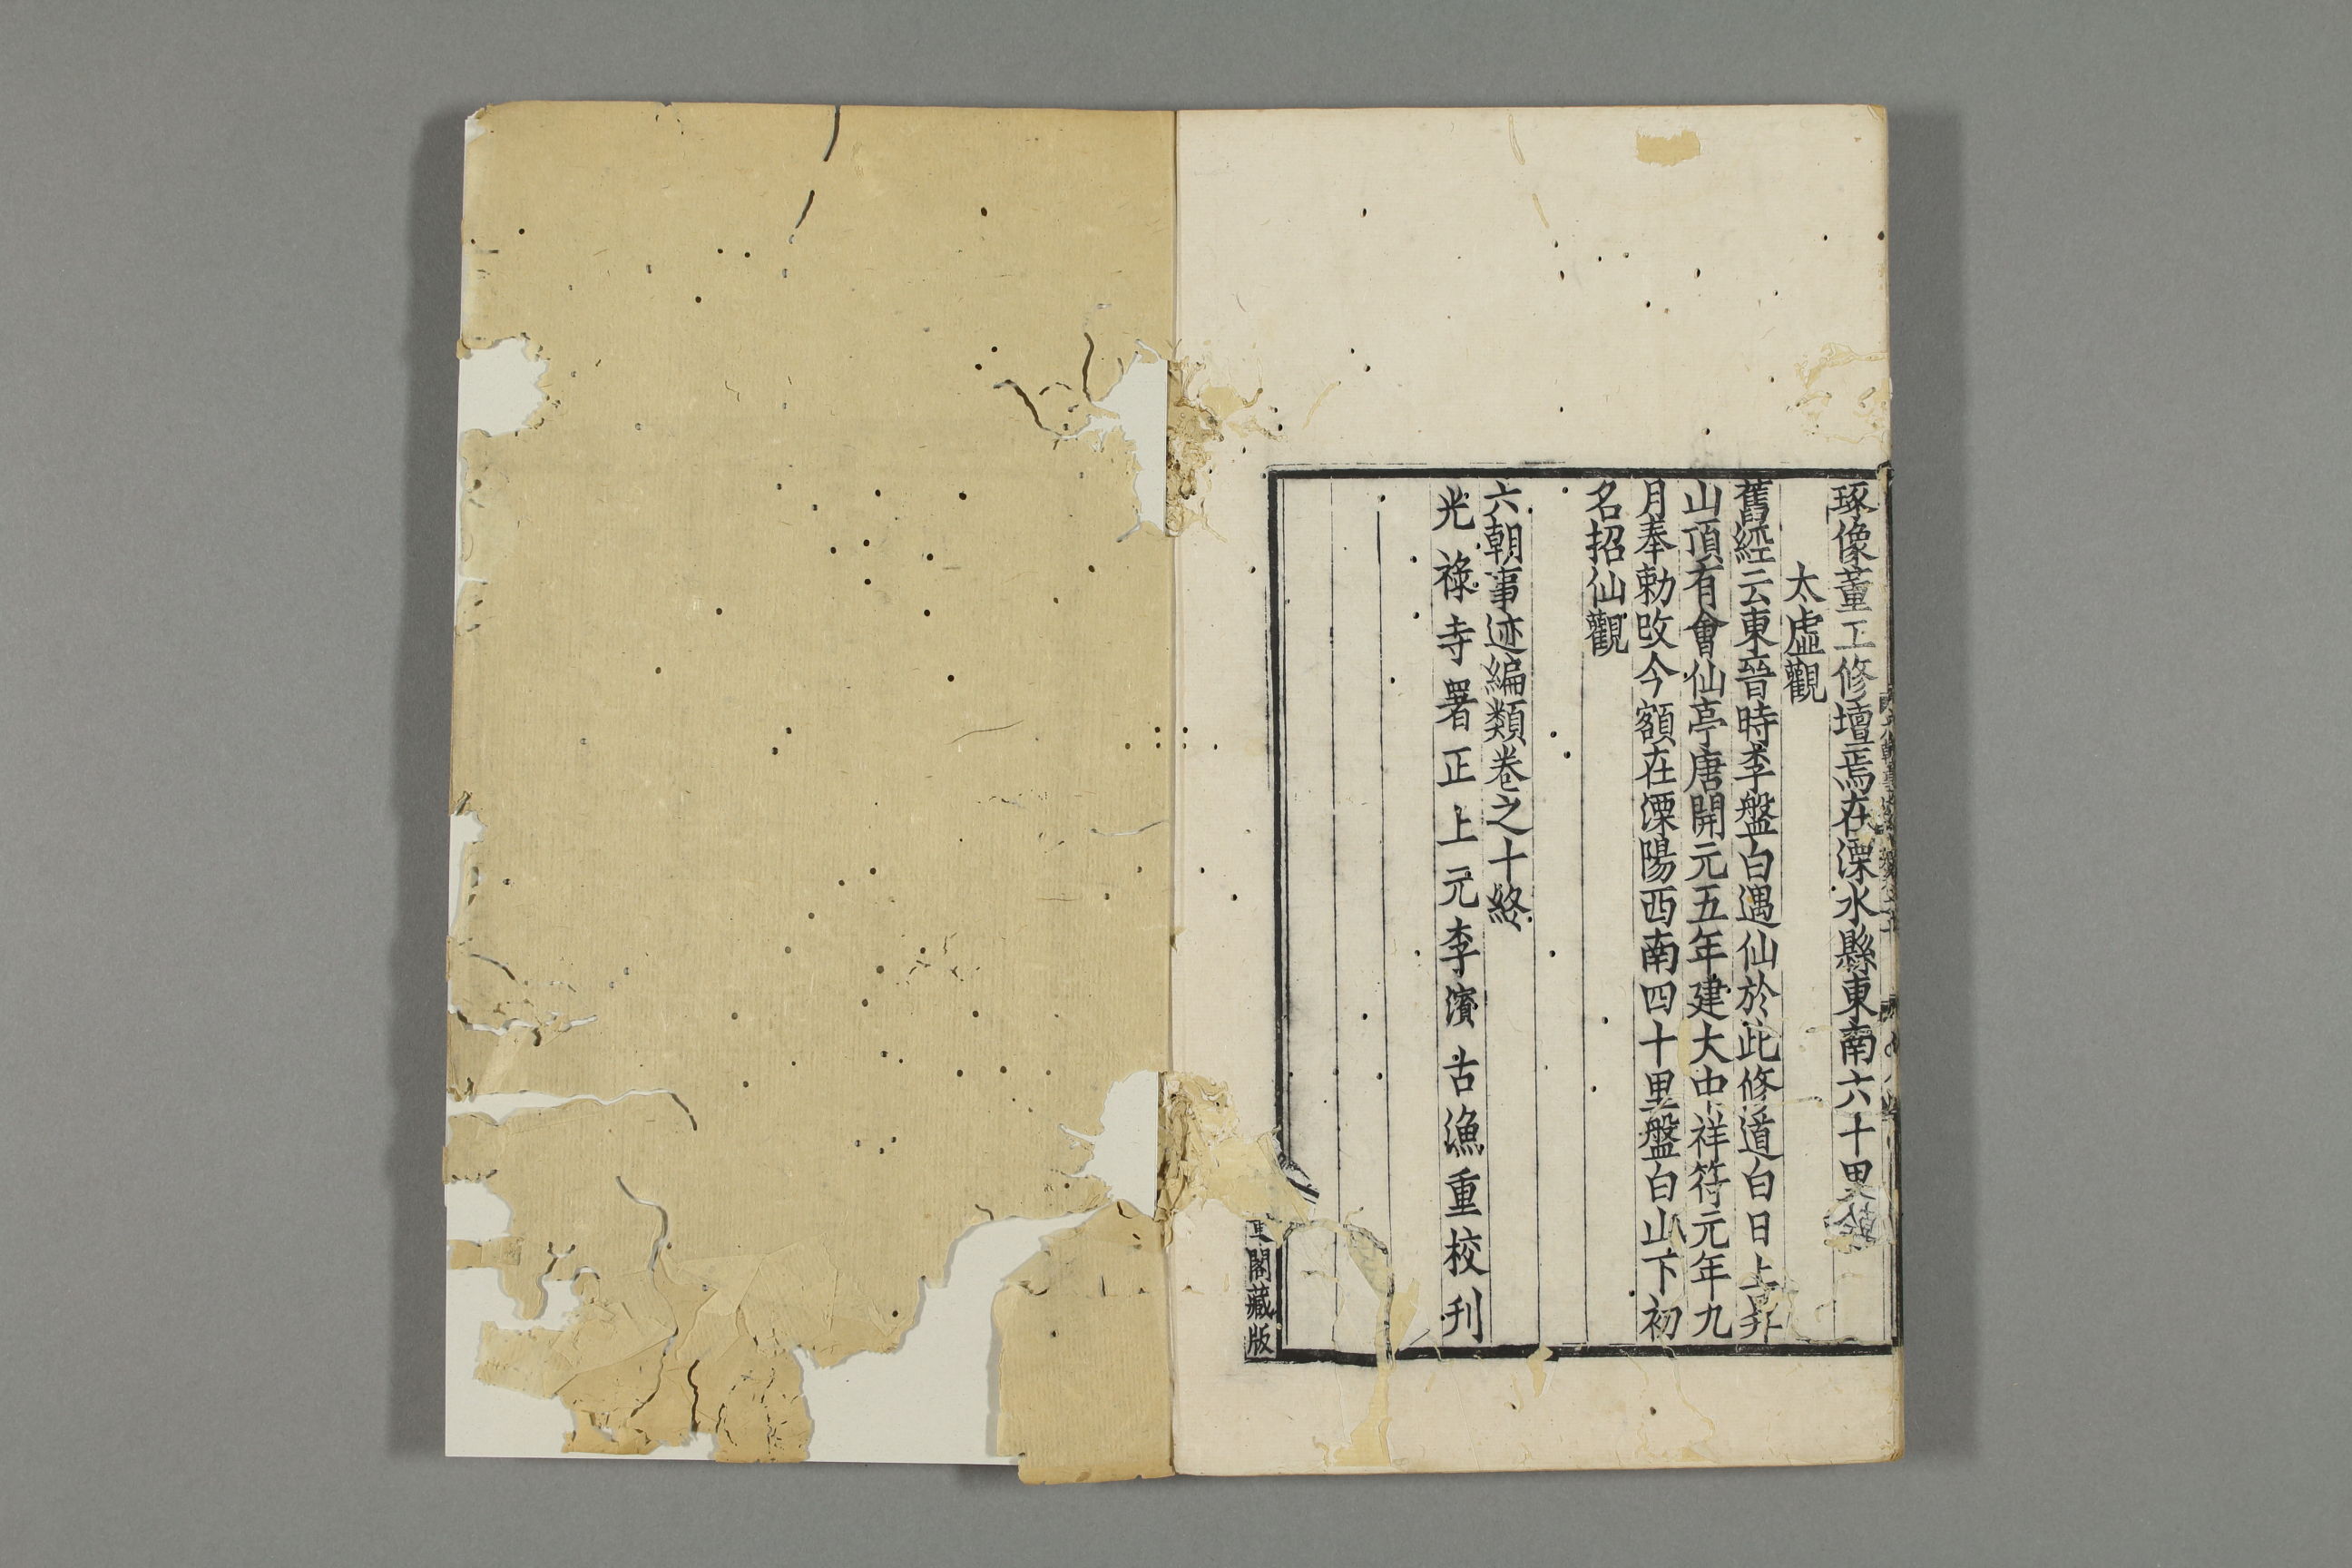 琢像董工修壇焉在溧水縣東南六十里
太虛觀
舊經云東晉時李盤白遇仙於此修道白日上昇
山頂有會仙亭唐開元五年建大中祥符元年九
月奉勅改今額在溧陽西南四十里盤白山下初
名招仙觀
六朝事迹編類卷之十終
光祿寺署正上元李濱古漁重校刊
閣藏版